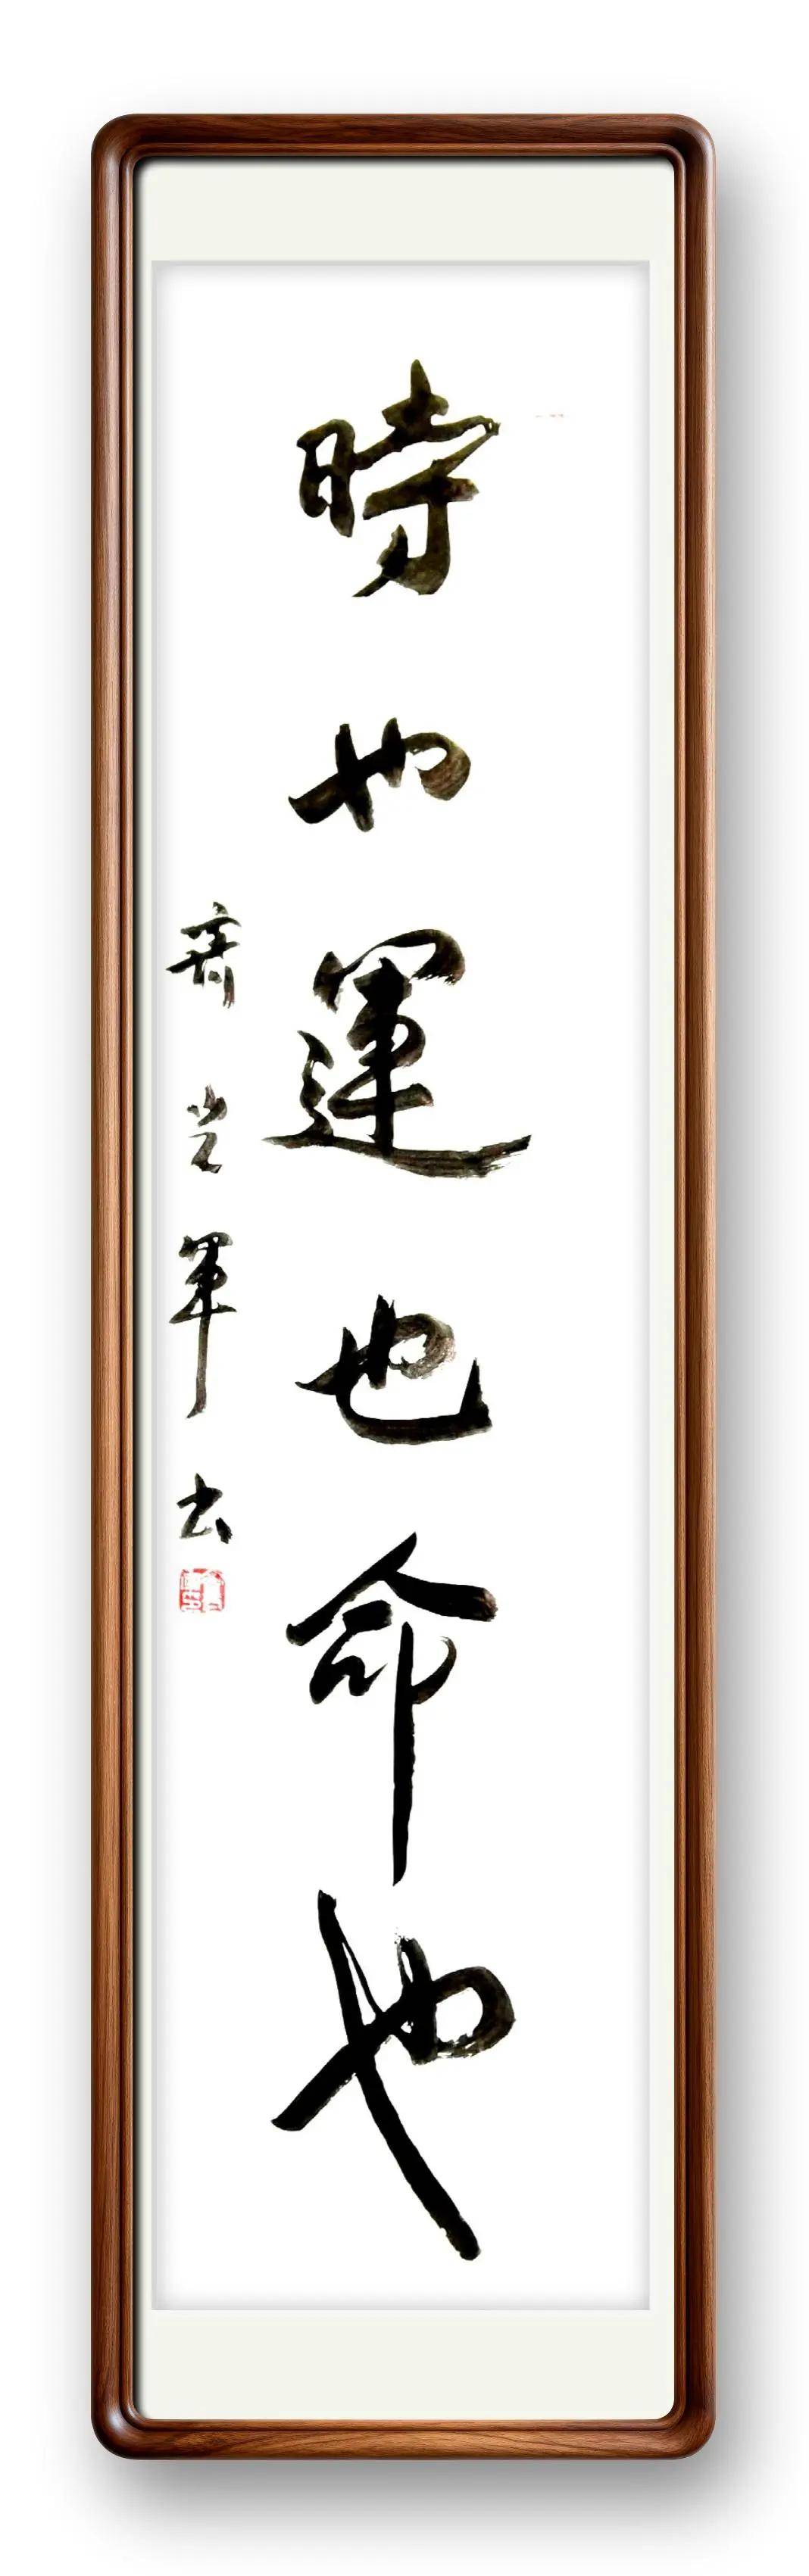 時也運也命也
齊光軍书